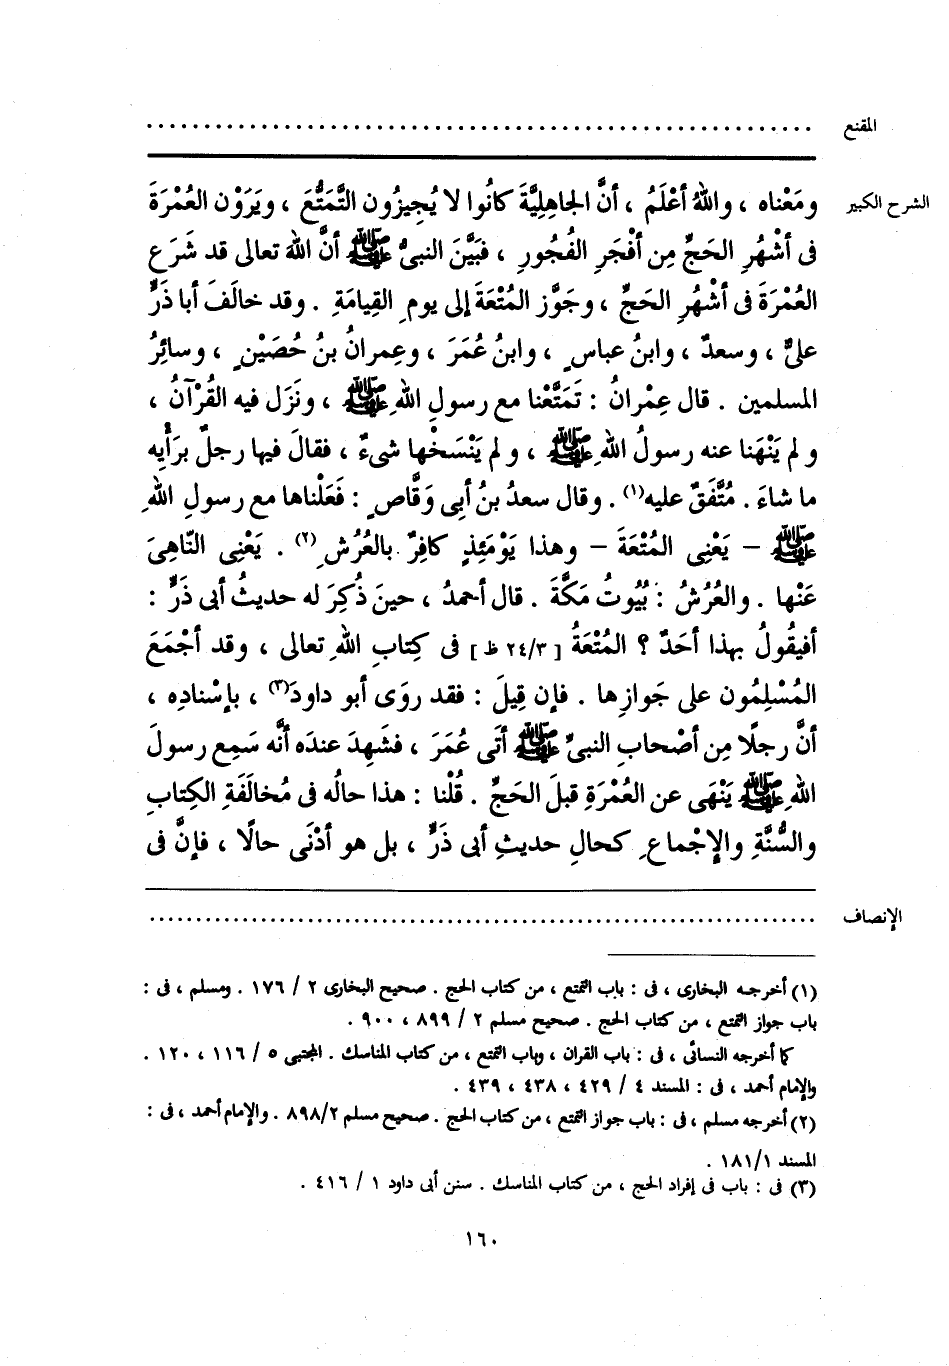 المقنع ............................................................
الشرح الكبير ومَعْناه ، واللهُ أعْلَمُ ، أنَّ الجاهِلِيَّةَ كانُوا لا يُجِيزُون التَّمَتُّعَ ، ويَرَوْن العُمْرَةَ
فى أشْهُرِ الحَجِّ مِن أفْجَرِ الفُجُورِ ، فبَيَّنَ النبىُّ ﷺ أنَّ اللهَ تعالى قد شَرَع
العُمْرَةَ فى أشْهُرِ الحَجِّ ، وجَوَّز المُتْعَةَ إلى يومِ القِيامَةِ . وقد خالَفَ أبا ذَرٍّ
علىٌّ ، وسعدٌ ، وابنُ عباسٍ ، وابنُ عُمَرَ ، وعِمرانُ بنُ حُصَيْنٍ ، وسائِرُ
المسلمين . قال عِمْرانُ : تَمَتَّعْنا مع رسولِ اللهِ ﷺ ، ونَزَل فيه القُرْآنُ ،
ولم يَنْهَنا عنه رسولُ اللهِ ﷺ ، ولم يَنْسَخْها شىءٌ ، فقالَ فيها رجلٌ برَأْيِه
ما شاءَ . مُتَّفَقٌ عليه(١) . وقال سعدُ بنُ أبِى وَقَّاصٍ : فَعَلْناها مع رسولِ اللهِ
ﷺ – يَعْنِى المُتْعَةَ – وهذا يَوْمَئِذٍ كافِرٌ بالعُرُشِ(٢) . يَعْنِى النّاهِىَ
عَنْها . والعُرُشُ : بُيُوتُ مَكَّةَ . قال أحمدُ ، حينَ ذُكِرَ له حديثُ أبى ذَرٍّ :
أفيقُولُ بهذا أحَدٌ ؟ المُتْعَةُ [ ٢٤/٣ ظ ] فى كِتابِ اللهِ تعالى ، وقد أجْمَعَ
المُسْلِمُون على جَوازِها . فإن قِيلَ : فقد روَى أبو داودَ(٣) ، بإسْنادِه ،
أنَّ رجلًا مِن أصْحابِ النبىِّ ﷺ أتَى عُمَرَ ، فشَهِدَ عندَه أنَّه سَمِع رسولَ
اللهِ ﷺ يَنْهَى عن العُمْرَةِ قبلَ الحَجِّ . قُلْنا : هذا حالُه فى مُخالَفَةِ الكِتابِ
والسُّنَّةِ والإِجْماعِ كحالِ حديثِ أبى ذَرٍّ ، بل هو أدْنَى حالًا ، فإنَّ فى
الإنصاف ............................................................
(١) أخرجه البخارى ، فى : باب التمتع ، من كتاب الحج . صحيح البخارى ٢ / ١٧٦ . ومسلم ، فى :
باب جواز التمتع ، من كتاب الحج . صحيح مسلم ٢ / ٨٩٩ ، ٩٠٠ .
كما أخرجه النسائى ، فى : باب القران ، وباب التمتع ، من كتاب المناسك . المجتبى ٥ / ١١٦ ، ١٢٠ .
والإمام أحمد ، فى : المسند ٤ / ٤٢٩ ، ٤٣٨ ، ٤٣٩ .
(٢) أخرجه مسلم ، فى : باب جواز التمتع ، من كتاب الحج . صحيح مسلم ٨٩٨/٢ . والإمام أحمد ، فى :
المسند ١٨١/١ .
(٣) فى : باب فى إفراد الحج ، من كتاب المناسك . سنن أبى داود ١ / ٤١٦ .
١٦٠